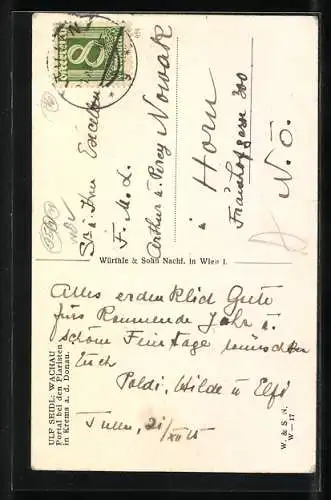 8
Sr. u. Ihre Exzellenz
F. M. L.
Arthur u. Percy Nowak
Horn
300
N. Ö.
Würthle & Sohn Nachf. in Wien I.
Alles erdenklich Gute
fürs kommende Jahr u.
schöne Feiertage wünschen
Euch
Poldi, Hilde u. Elfi
Tulln, 21/XII 25
ULF SEIDL: WACHAU
Portal bei den Piaristen
in Krems a. d. Donau.
W. & S. N.
W.—17